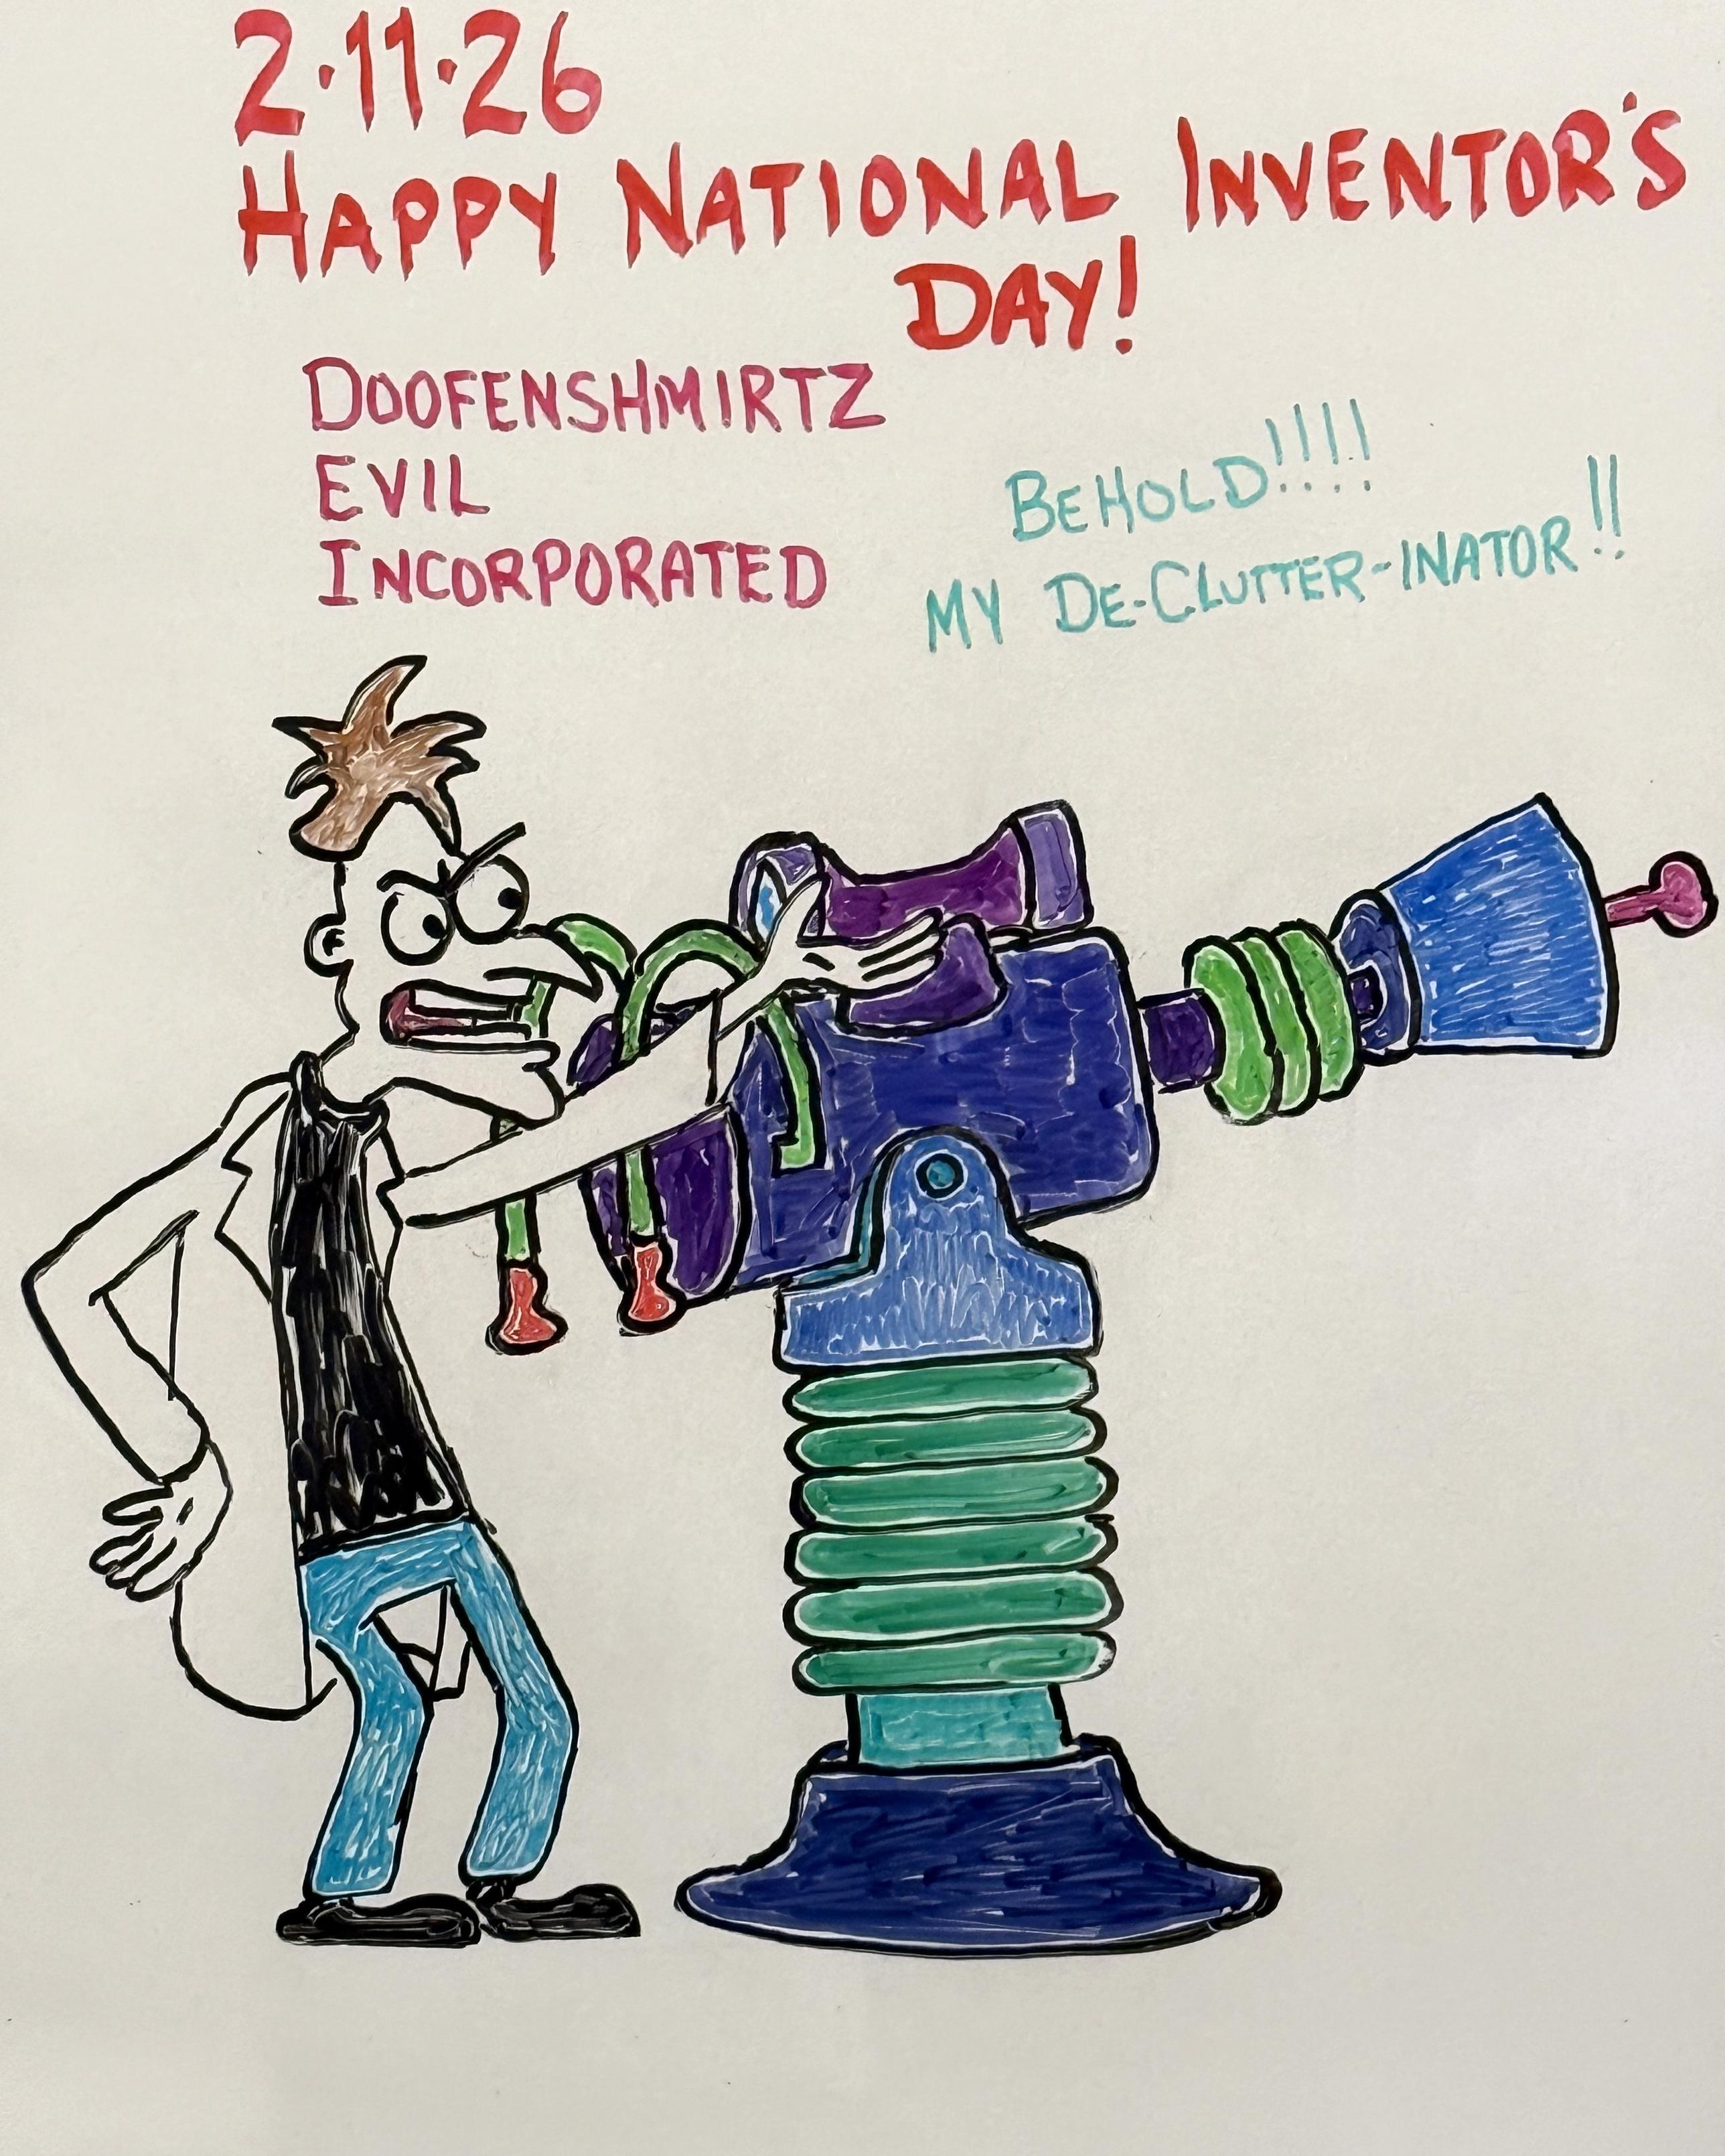 2·11·26
HAPPY NATIONAL INVENTOR'S
DAY!
DOOFENSHMIRTZ
EVIL
INCORPORATED
BEHOLD!!!!
MY DE-CLUTTER-INATOR!!